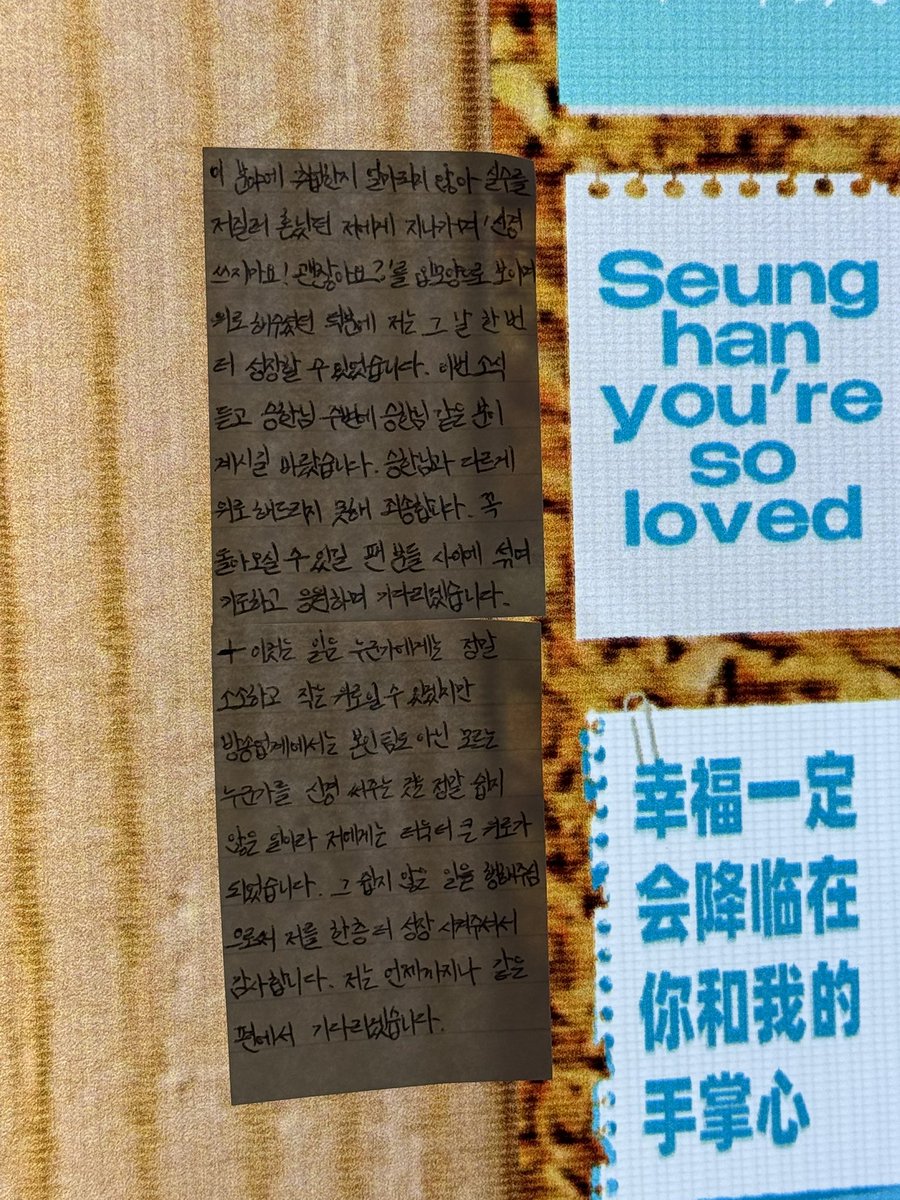 이 분야에 취업한지 얼마되지 않아 실수를
저질러 혼났던 저에게 지나가며 '신경
쓰지마요! 괜찮아요?'를 입모양으로 보이며
위로해주셨던 덕분에 저는 그 날 한 번
더 성장할 수 있었습니다. 이번 소식
듣고 승한님 주변에 승한님 같은 분이
계시길 바랐습니다. 승한님과 다르게
위로해드리지 못해 죄송합니다. 꼭
돌아오실 수 있길 팬 분들 사이에 섞여
기도하고 응원하며 기다리겠습니다.
+ 이러는 일은 누군가에게는 정말
소소하고 작은 위로일 수 있겠지만
방송업계에서는 본인팀도 아닌 모르는
누군가를 신경 써주는 것은 정말 쉽지
않은 일이라 저에게는 더욱더 큰 위로가
되었습니다. 그 쉽지 않은 일을 행해주심
으로써 저를 한층 더 성장 시켜주셔서
감사합니다. 저는 언제까지나 같은
편에서 기다리겠습니다.
Seung
han
you're
so
loved
幸福一定
会降临在
你和我的
手掌心